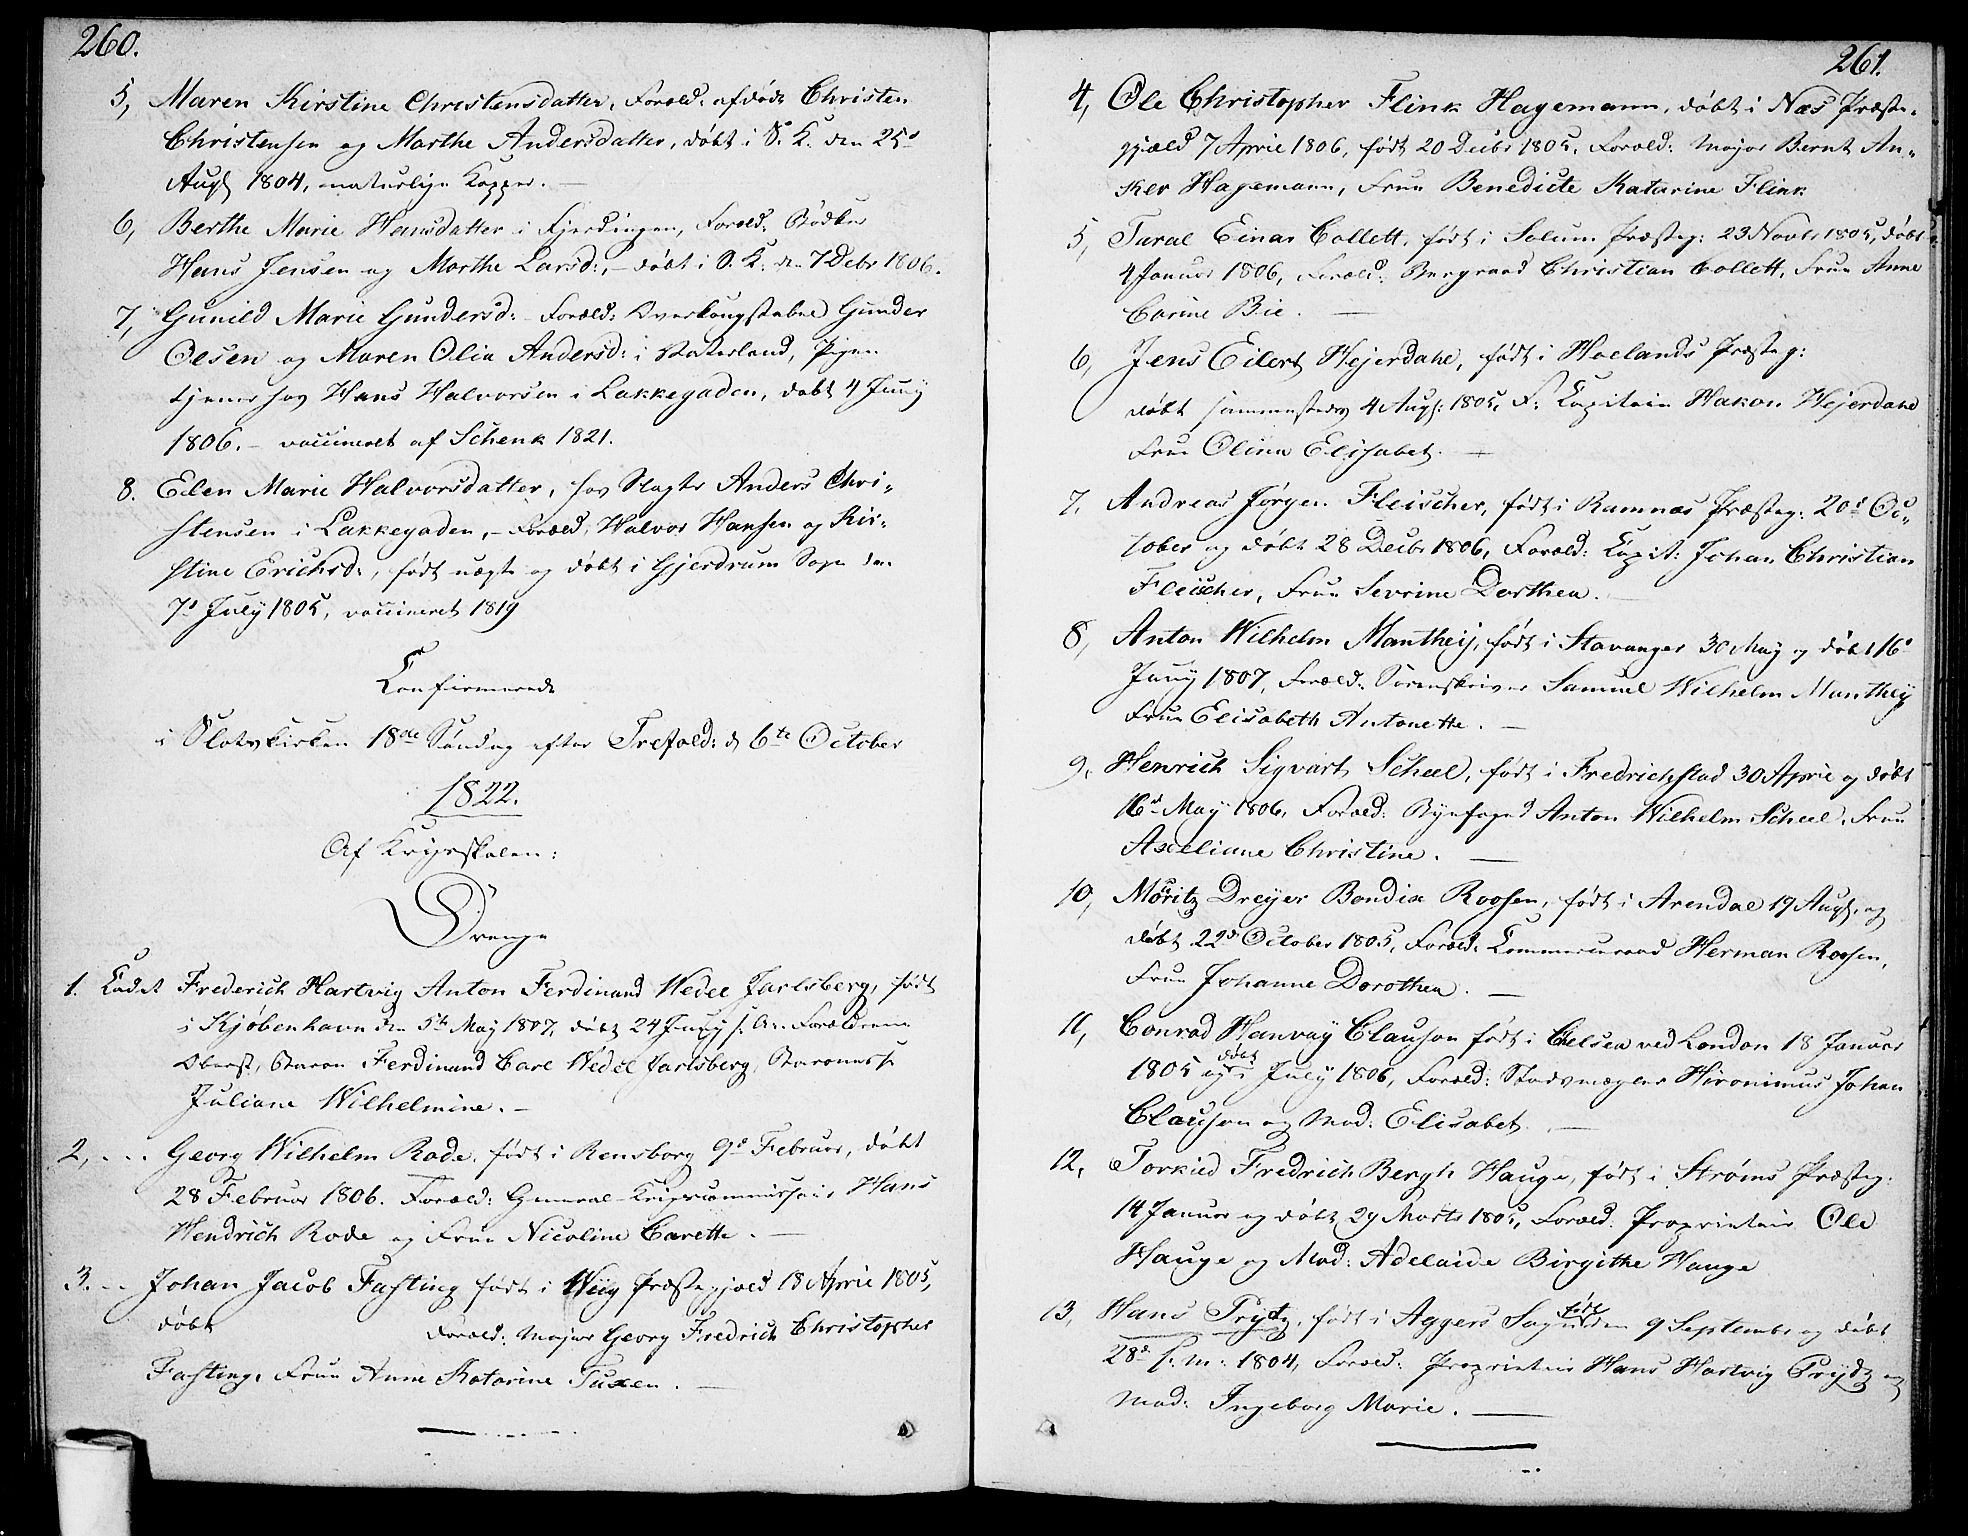 260.
5, Maren Kirstine Christensdatter, Foræld: afdøde Christen
Christensen og Marthe Andersdatter, døbt i S. K. den 25d
Augs 1804, naturlige Kopper. —
6, Berthe Marie Hansdatter i Fjerdingen, Foræld: Bødker
Hans Jensen og Marthe Larsd:, – døbt i O. K. den 7 Debr 1806.
7, Gunild Marie Gundersd: Foræld: Gunder
Olsen og Maren Olia Andersd: i Vaterland, Pigen
tjener hos Hans Halvorsen i Lakkegaden, døbt 4 Juny
1806. – vaccineret af Schenk 1821.
8. Elen Marie Halvorsdatter, hos Slagter Anders Chri-
stensen i Lakkegaden, – Foræld. Halvor Hansen og Kir-
stine Erichsd:, født uægte og døbt i Gjerdrum Sogn den
7d July 1805, vaccineret 1819
Confirmerede
i Slotskirken 18de Søndag efter Trefold: d 6te October
1822.
Af Krigsskolen:
Drenge
1. Cadet Frederich Hartvig Anton Ferdinand Wedel Jarlsberg, født
i Kjøbenhavn den 5te May 1807, døbt 24 Juny s. A. Forældrene
Oberst, Baron Ferdinand Carl Wedel Jarlsberg, Baronesse
Juliane Wilhelmine. –
2, . . . Georg Wilhelm Rode, født i Rensborg 9d Februar, døbt
28 Februar 1806. Foræld: General-Krigscommissair Hans
Hendrich Rode og Frue Nicoline Carette. —
3. . . Johan Jacob Fasting født i Wiig Præstegjæld 18 April 1805,
døbt Foræld: Major Georg Fredrich Christopher
Fasting, Frue Anne Katarine Tuxen. —
261.
4, Ole Christopher Flink Hagemann, døbt i Næs Præste-
gjæld 7 April 1806, født 20 Decbr 1805, Foræld: Major Bernt An-
ker Hagemann, Frue Benedicte Katarine Flink
5, Tural Einar Collett, født i Solum Præsteg: 23 Novbr 1805, døbt
4 Januar 1806, Foræld: Bergraad Christian Collett, Frue Anne
Carine Bie. —
6, Jens Eilert Hejerdahl, født i Hoelands Præsteg:
døbt sammesteds 4 Augs: 1805, F: Capitain Hakon Hejerdahl
Frue Olina Elisabet. —
7. Andreas Jørgen Fleischer, født i Ramnæs Præsteg: 20d Oc-
tober og døbt 28 Decbr 1806, Foræld: Capit: Johan Christian
Fleischer, Frue Sevrine Dorthea. —
8, Anton Wilhelm Manthey, født i Stavanger 30 May og døbt 16d
Juny 1807, Foræld: Sorenskriver Samuel Wilhelm Manthey
Frue Elisabeth Antonette. —
9, Henrich Sigvart Scheel, født i Fredrichstad 30 April og døbt
16d May 1806, Foræld: Byefoged Anton Wilhelm Scheel, Frue
Axeliane Christine. —
10, Moritz Dreyer Bendix Roosen, født i Arendal 19 Augs. og
døbt 22d October 1805, Foræld: Commerceraad Herman Roosen,
Frue Johanne Dorothea. —
11, Conrad Hanvay Clauson født i Chelsea ved London 18 Januar
1805 og døbt July 1806, Foræld: Stadsmægler Hironimus Johan
Clauson og Mad: Elisabet. —
12, Torkild Fredrich Bergh Hauge, født i Strøms Præsteg:
14 Januar og døbt 29 Marts 1805, Foræld. Proprietair Ole
Hauge og Mad: Adelaide Birgithe Hauge
13, Hans Prytz, født i Aggers Sogn født den 9 Septembr og døbt
28d s. M. 1804, Foræld: Proprietair Hans Hartvig Prydtz og
Mad: Ingeborg Marie. —